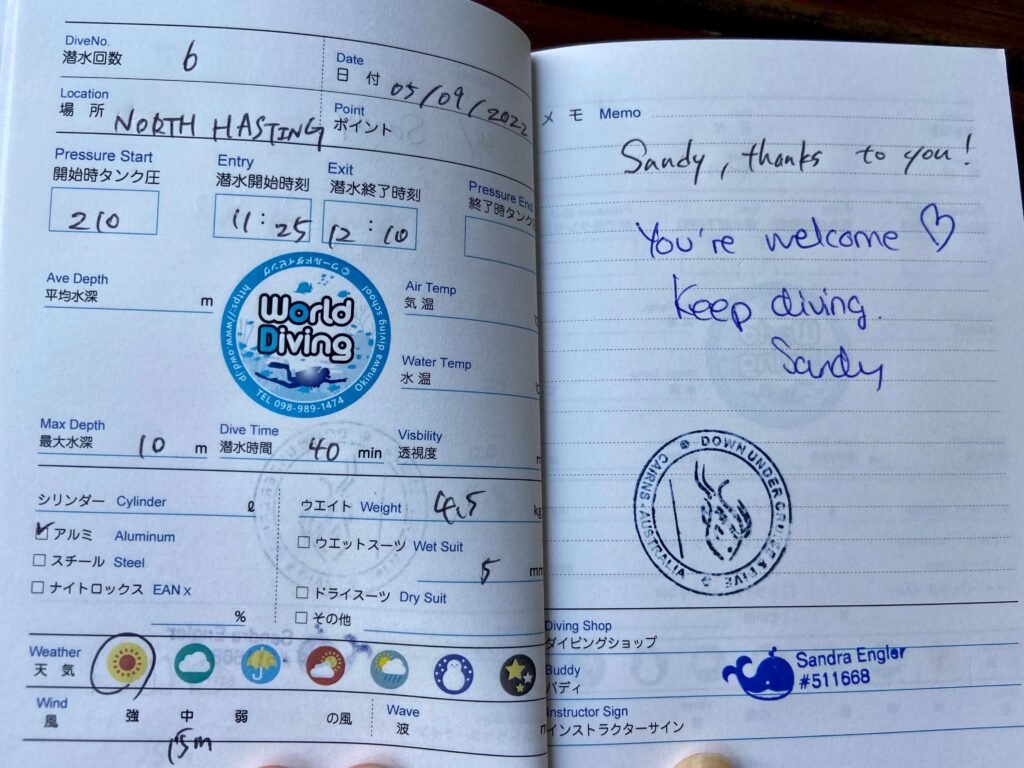 DiveNo.
潜水回数 6
Date
日付 05/09/2022
Location
場所 NORTH HASTING
Point
ポイント
Pressure Start
開始時タンク圧
210
Entry
潜水開始時刻
11:25
Exit
潜水終了時刻
12:10
Pressure End
終了時タンク圧
Ave Depth
平均水深 m
© ワールドダイビング
https://www.owp.jp
Okinawa diving school
World
Diving
TEL 098-989-1474
Air Temp
気温 ℃
Water Temp
水温 ℃
Max Depth
最大水深 10 m
Dive Time
潜水時間 40 min
Visbility
透視度 m
シリンダー Cylinder ℓ
アルミ Aluminum
スチール Steel
ナイトロックス EAN x
%
ウエイト Weight 4.5 kg
ウエットスーツ Wet Suit
5 mm
ドライスーツ Dry Suit
その他
Weather
天気
Wind
風 強 中 弱 の風
15m
Wave
波 m
メモ Memo
Sandy, thanks to you!
You're welcome ♡
Keep diving.
Sandy
DOWN UNDER CRUISE & DIVE
CAIRNS · AUSTRALIA
Diving Shop
ダイビングショップ
Buddy
バディ
Sandra Engler
#511668
Instructor Sign
インストラクターサイン